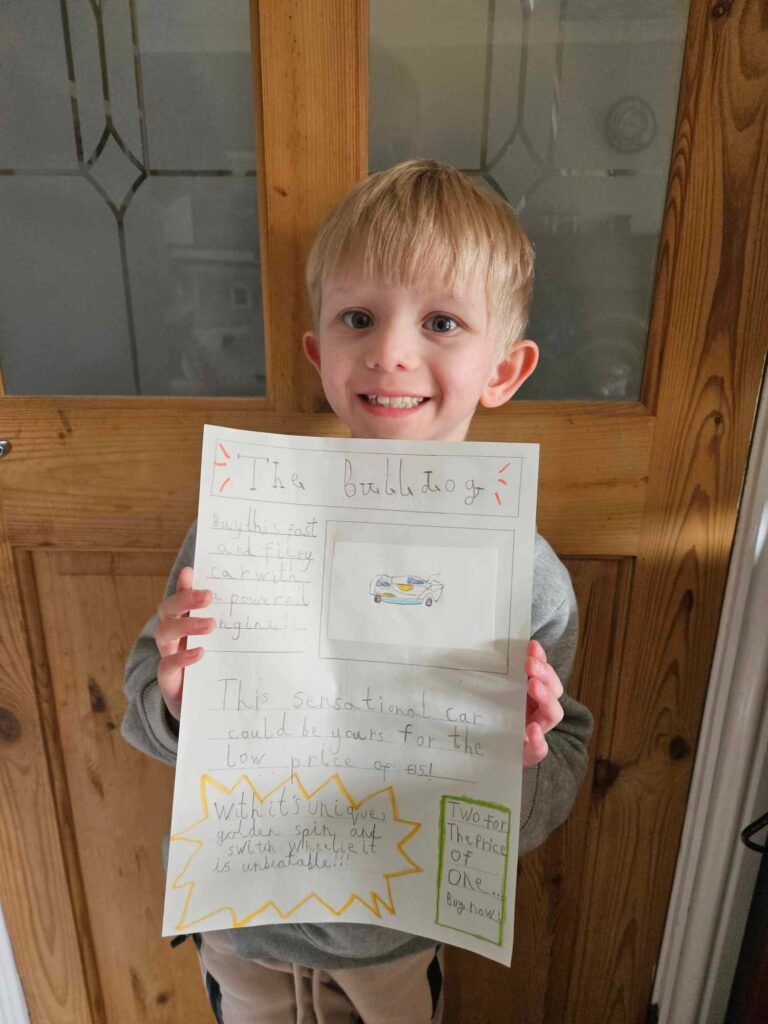 The Bulldog
Buy this fast
and fiery
car with
a powerful
engine!!
This sensational car
could be yours for the
low price of £5!
With it's unique,
golden spin and
swith wheelie it
is unbeatable!!!
Two for
The Price
Of
One...
Buy now!